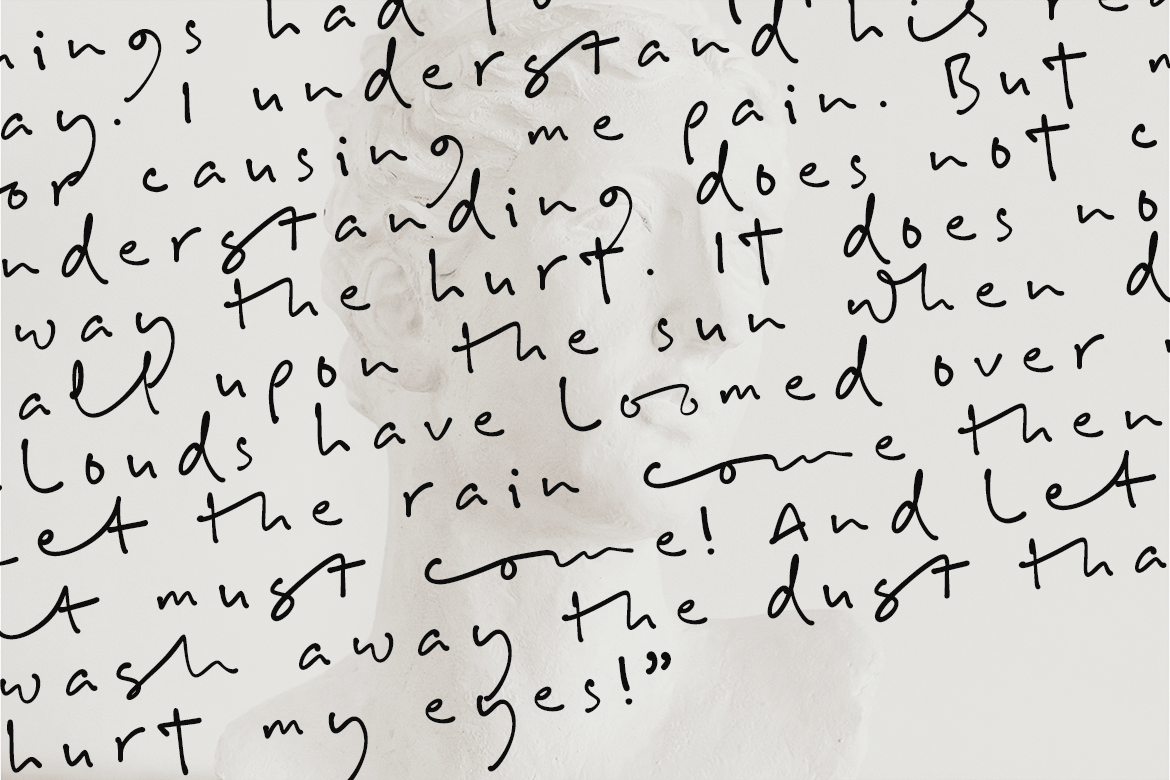 had
ay. I understand his
or causing me pain. But
nderstanding does not c
way the hurt. It does no
all upon the sun when d
louds have loomed over
Let the rain come then
t must come! And let
wash away the dust tha
hurt my eyes!”